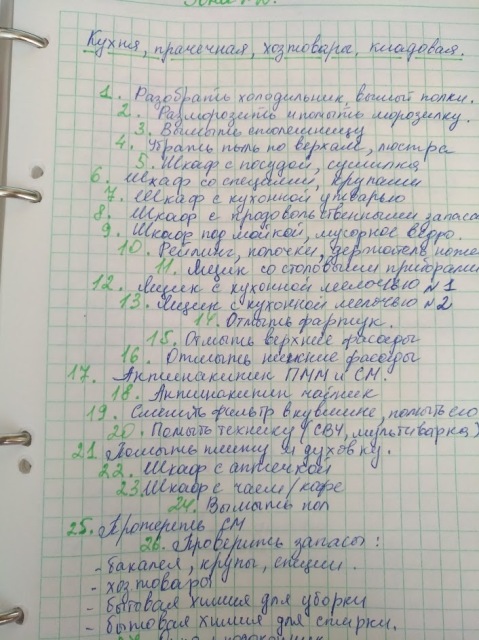 Кухня, прачечная, хозтовары, кладовая.
1. Разобрать холодильник, вымыт полки.
2. Разморозить и помыть морозилку.
3. Вымыть столешницу
4. Убрать пыль по верхам, люстра
5. Шкаф с посудой, сушилка
6. Шкаф со специями, крупами
7. Шкаф с кухонной утварью
8. Шкаф с продовольственными запаса
9. Шкаф под мойкой, мусорное ведро.
10. Рейлинг, полочки, держатель ноже
11. Ящик со столовыми приборами
12. Ящик с кухонной мелочью №1
13. Ящик с кухонной мелочью №2
14. Отмыть фартук.
15. Отмыть верхние фасады
16. Отмыть нижние фасады
17. Антинакипин ПММ и СМ.
18. Антинакипин чайник
19. Сменить фильтр в кувшине, помыть его
20. Помыть технику (СВЧ, мультиварка)
21. Помыть плиту и духовку.
22. Шкаф с аптечкой
23. Шкаф с чаем/кофе
24. Вымыть пол
25. Протереть СМ
26. Проверить запасы:
- бакалея, крупы, специи.
- хозтовары
- бытовая химия для уборки
- бытовая химия для стирки.